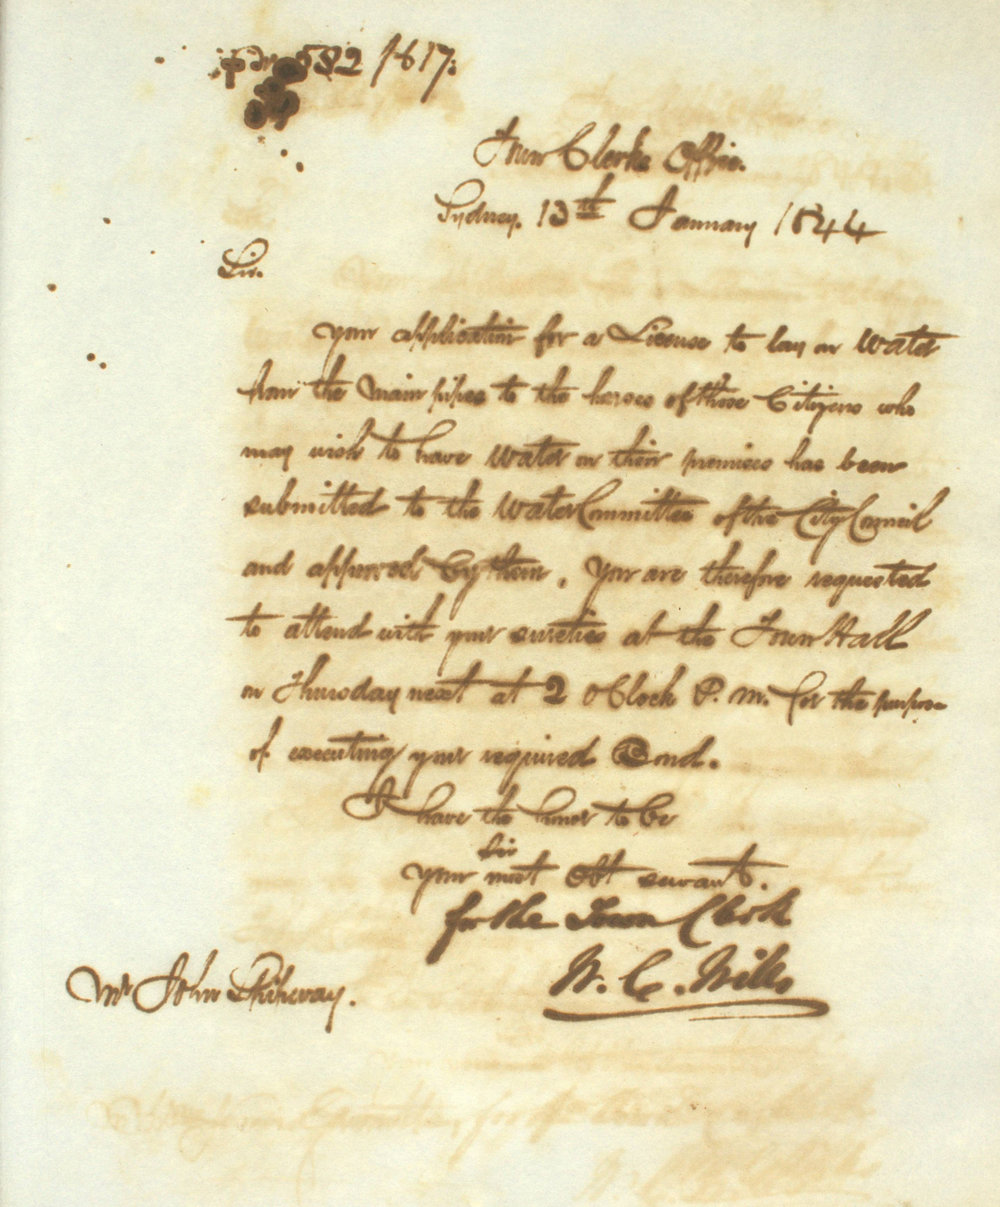 532 / 817:
Town Clerks Office.
Sydney. 13th January 1844
Sir.
Your application for a License to lay on Water
from the Main pipes to the houses of those Citizens who
may wish to have Water on their premises has been
submitted to the Water Committee of the City Council
and approved by them. You are therefore requested
to attend with your sureties at the Town Hall
on Thursday next at 2 OClock P.M. for the purpose
of executing your required Bond.
I have the honor to be
Sir
Your most Obt servant.
for the Town Clerk
W. C. Wills
Mr John